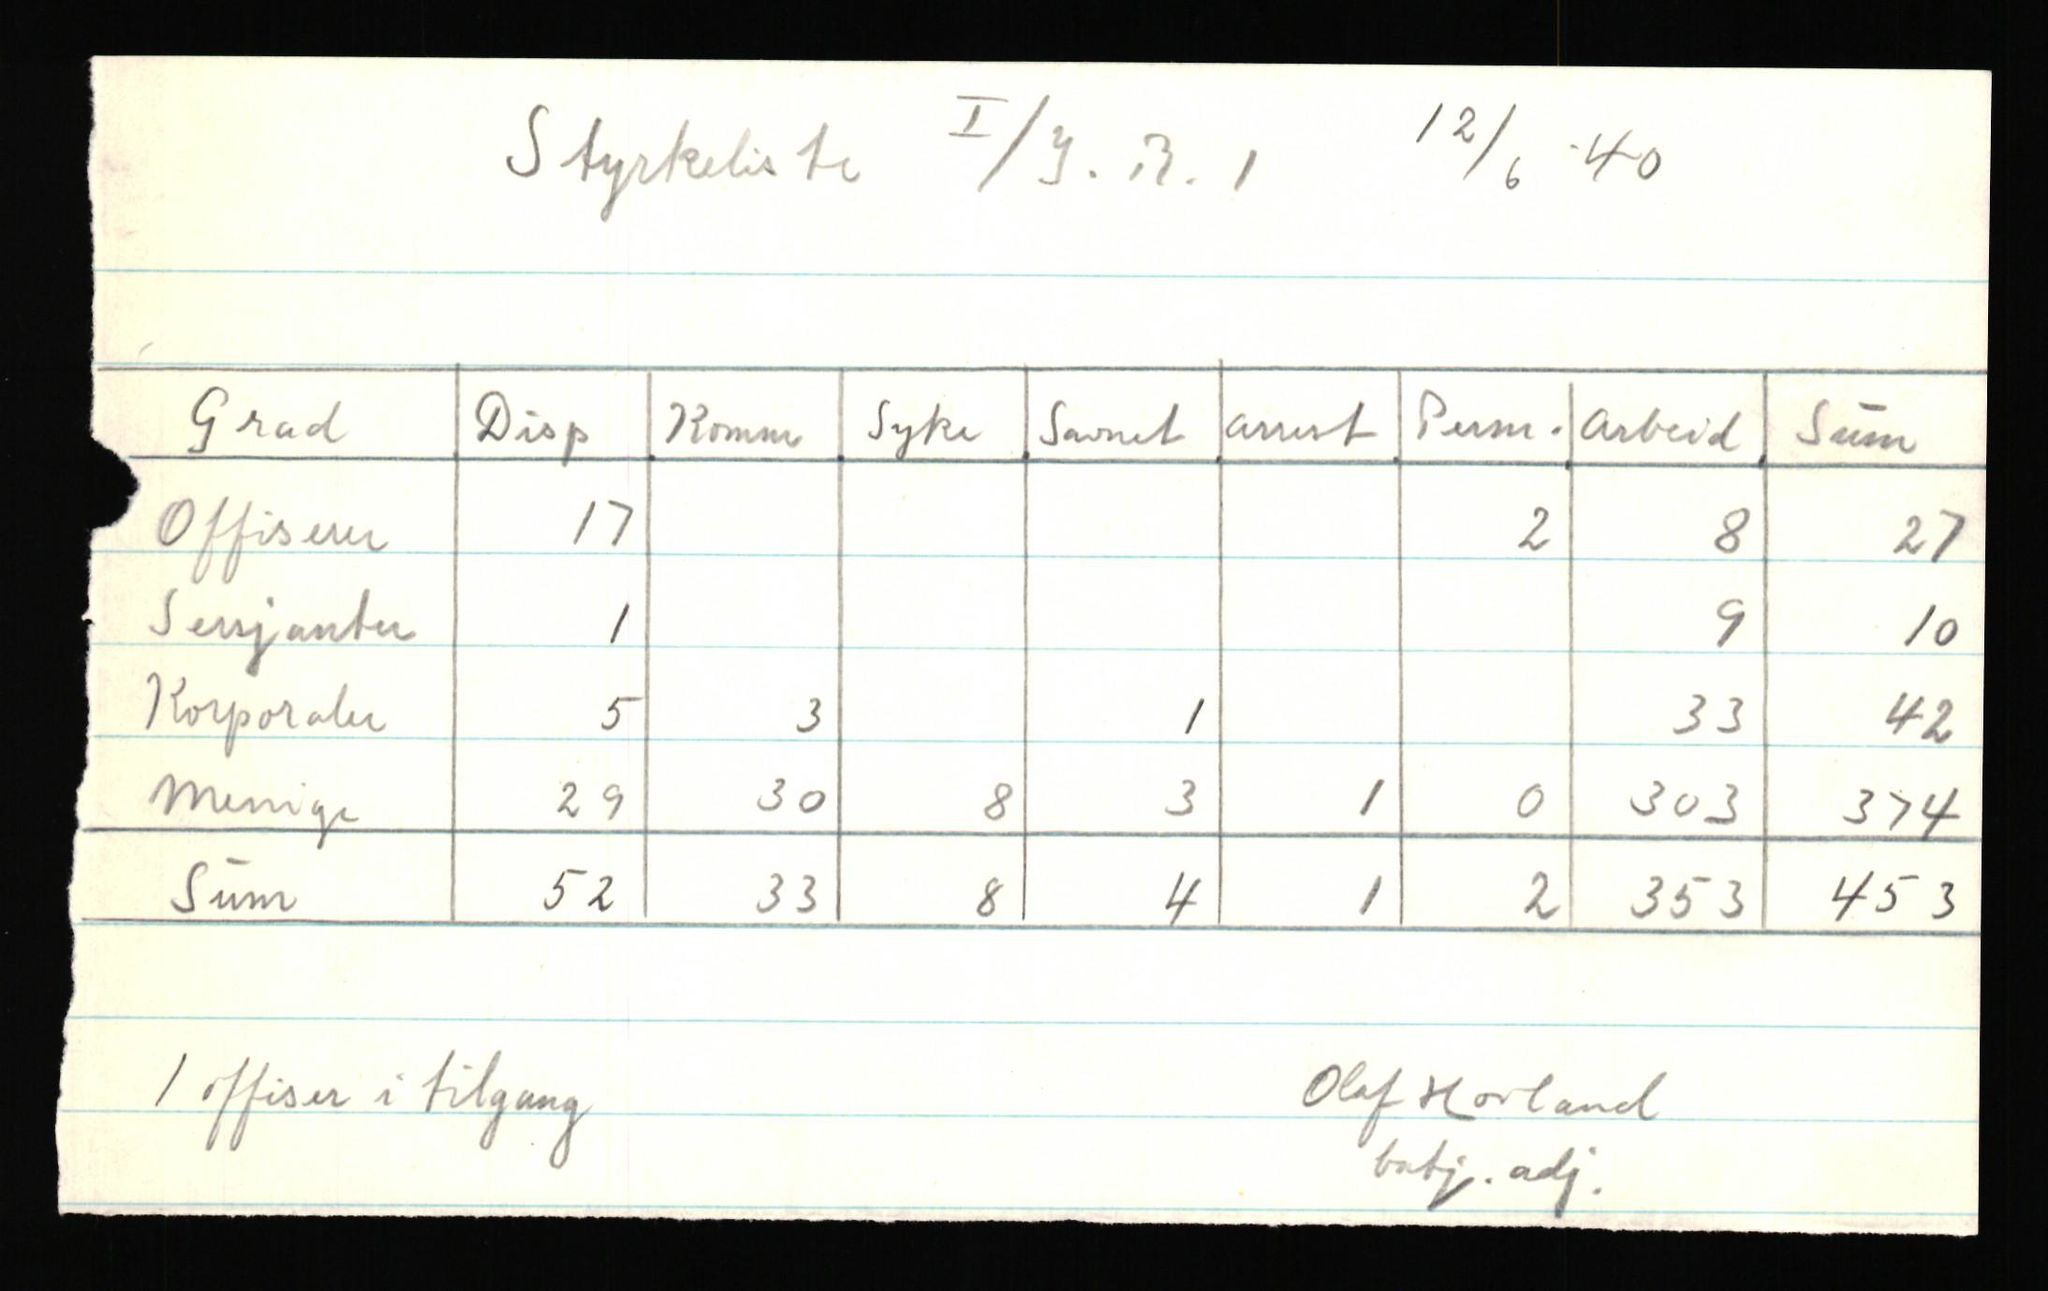 Styrkeliste I/J.R. 1 12/6 -40
Grad Disp Komm Syke Savnet arrest Perm. arbeid Sum
Offiserer 17 2 8 27
Sersjanter 1 9 10
Korporaler 5 3 1 33 42
Menige 29 30 8 3 1 0 303 374
Sum 52 33 8 4 1 2 353 453
1 offiser i tilgang
Olaf Hovland
batj. adj.